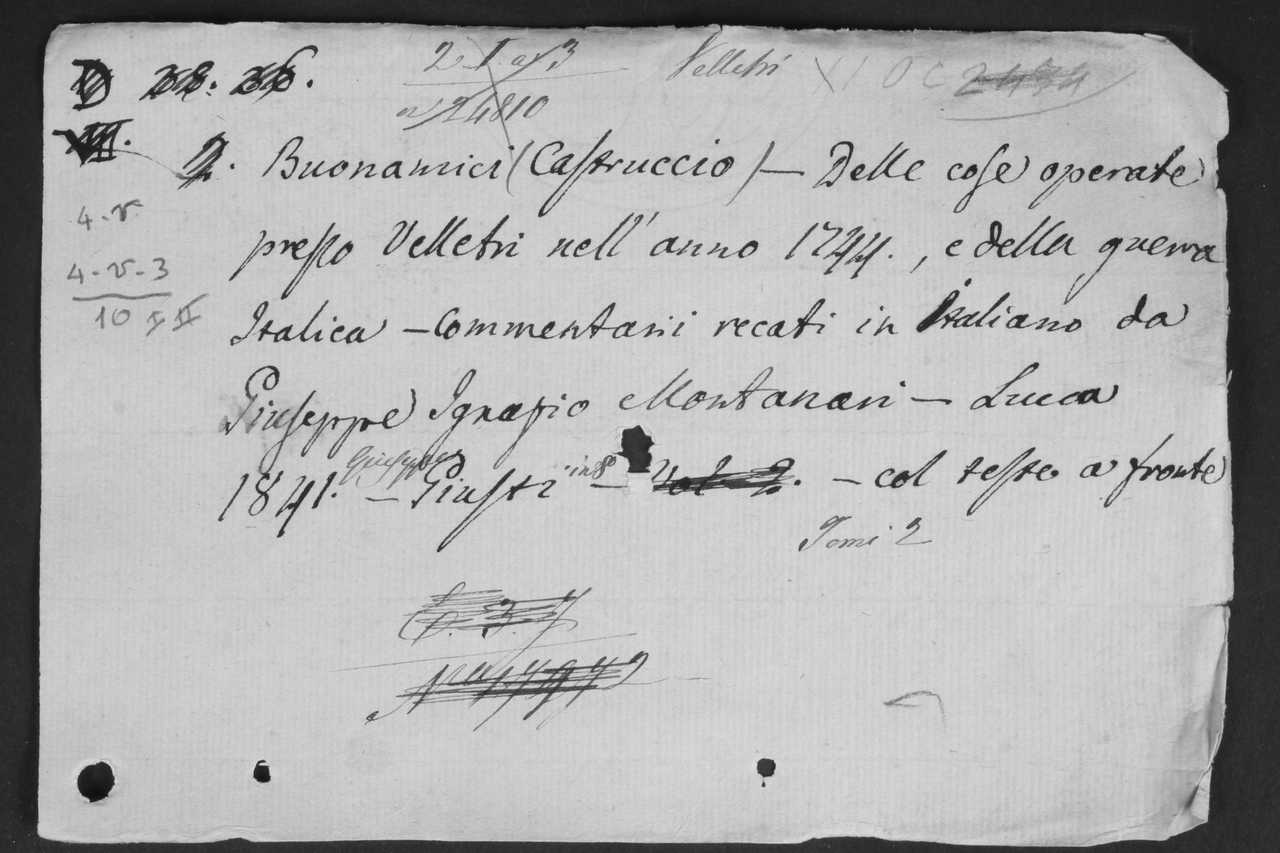 Velletri
24810
2. Buonamici (Castruccio) — Delle cose operate
presso Velletri nell'anno 1744., e della guerra
Italica — Commentarii recati in Italiano da
Giuseppe Ignazio Montanari — Lucca
1841. — Giuseppe Giusti in 8° — Vol. 2. — col testo a fronte
Tomi 2
4-V
4-V-3
10 I II